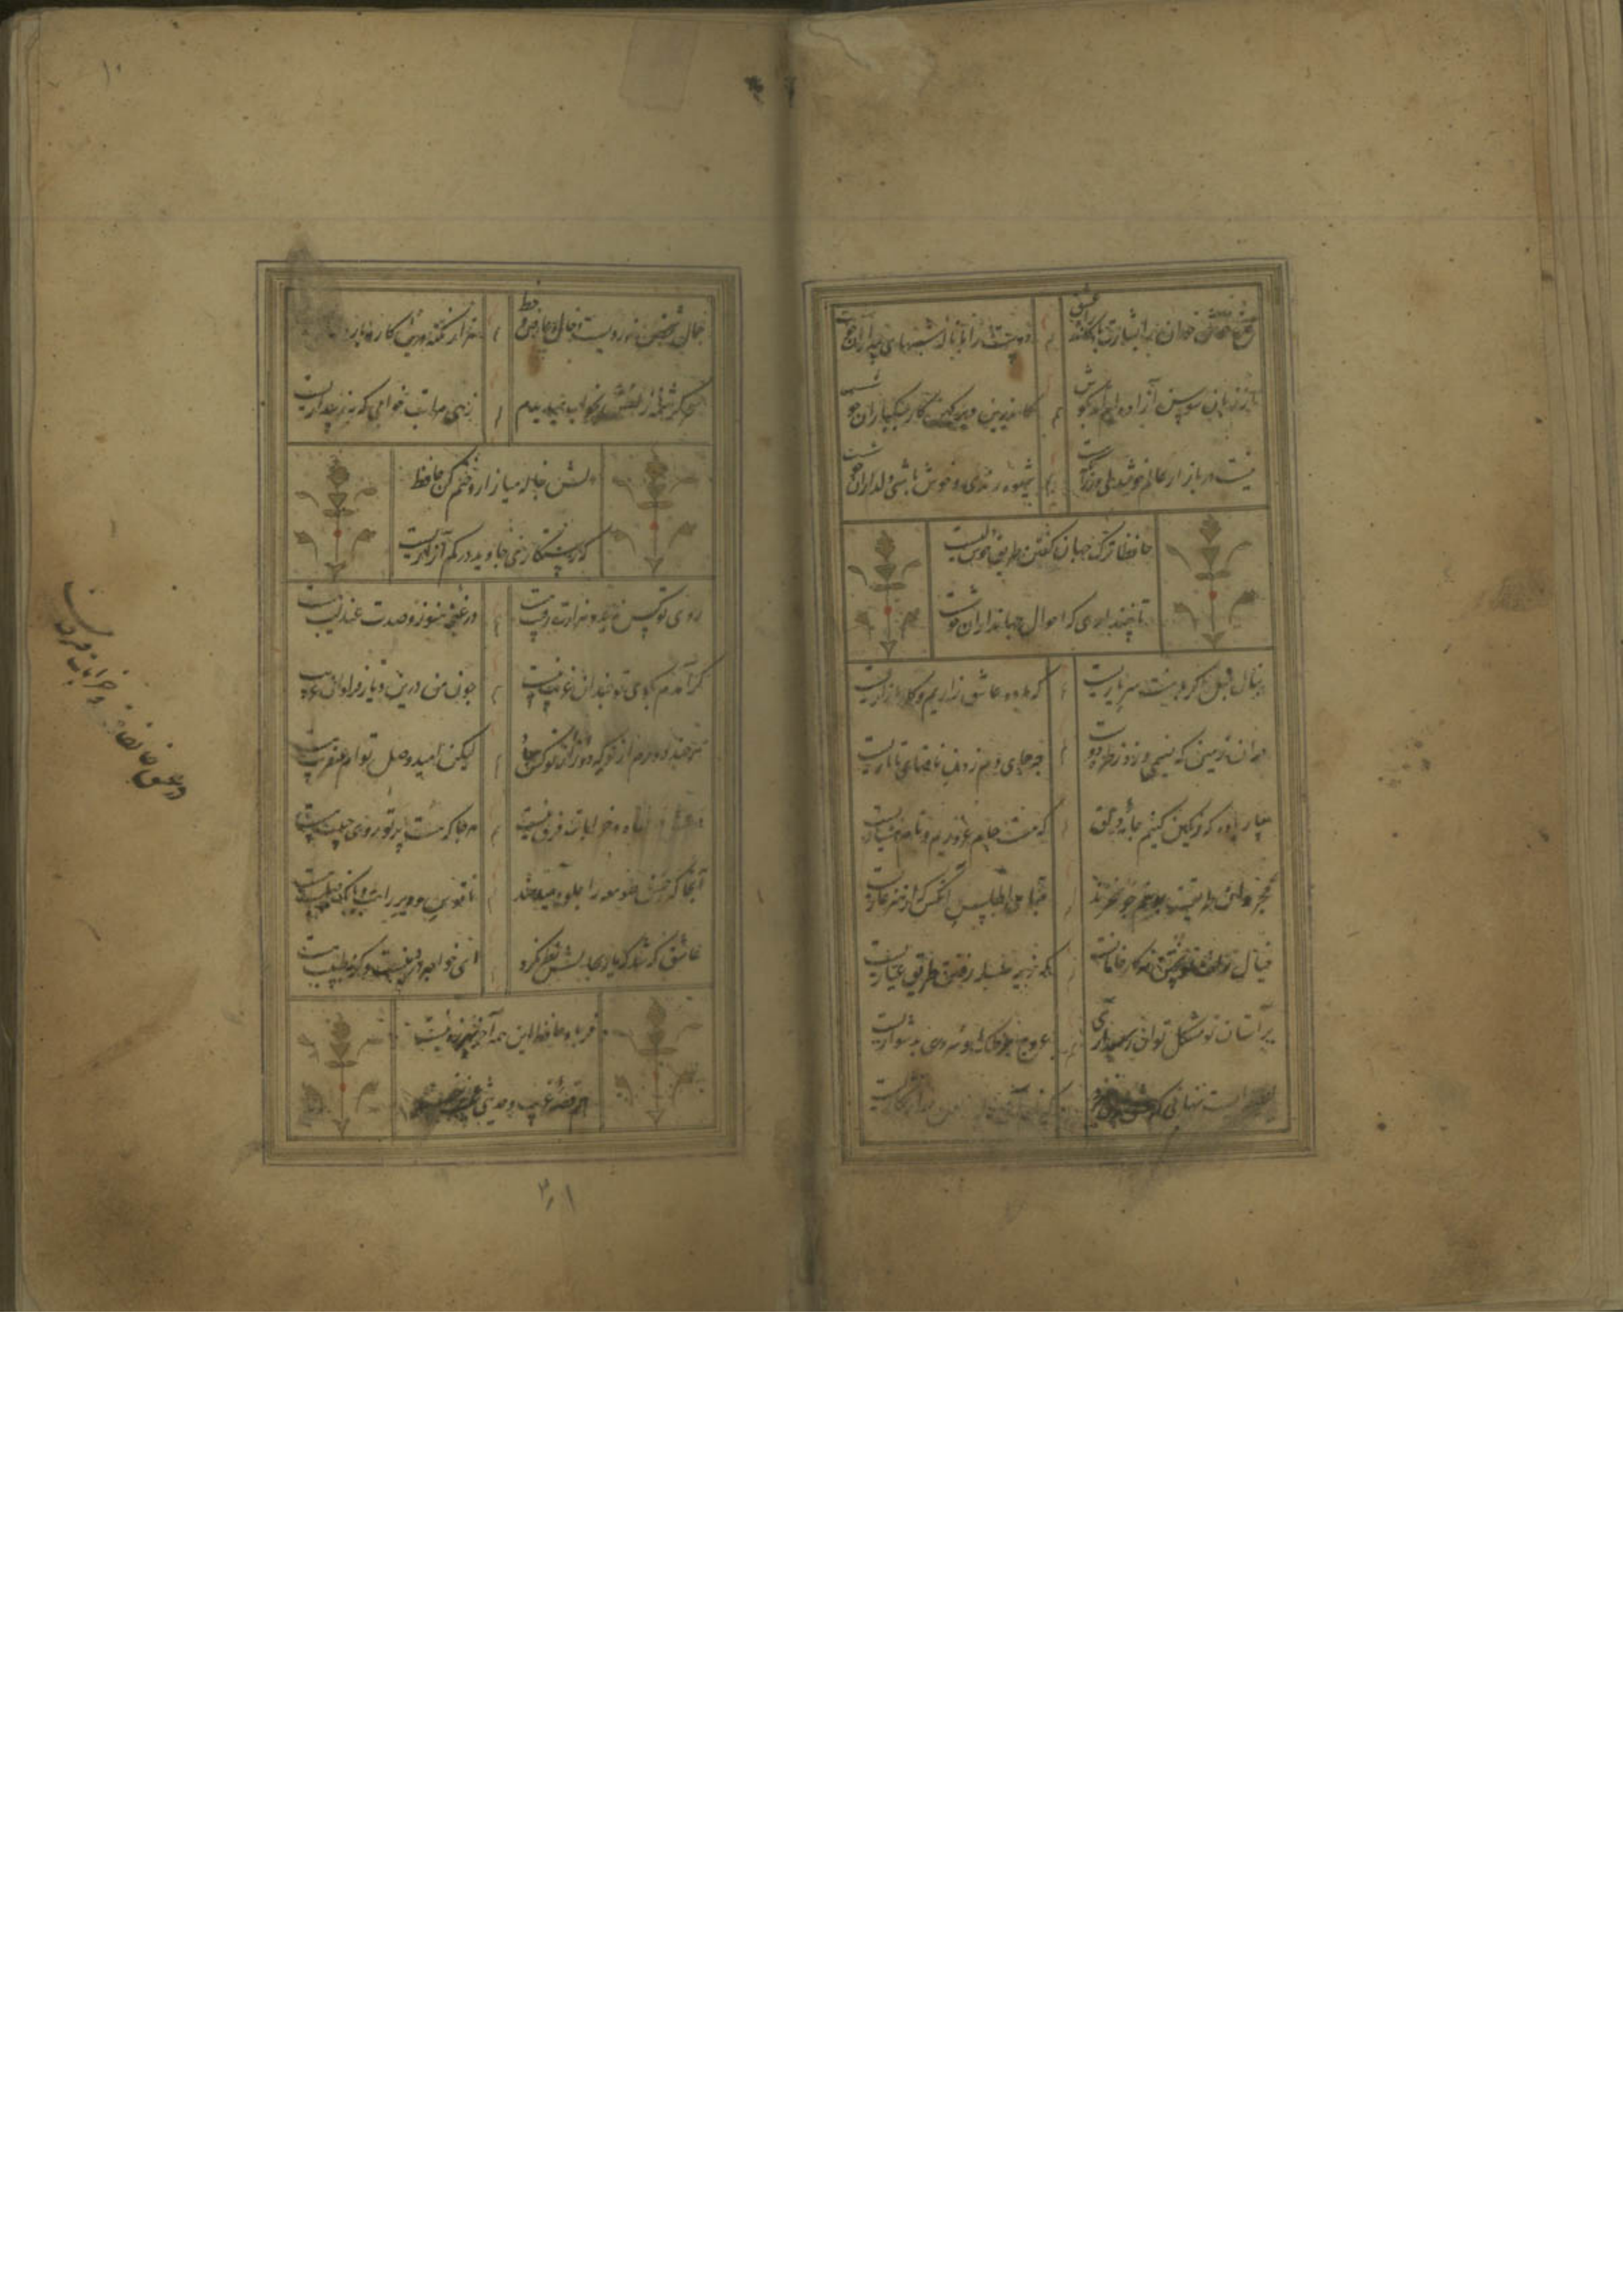 مرغ خوشخوان را بشارت باد کاندر راه عشق
دوست را با ناله شبهای بیداران خوشست
از زبان سوسن آزاده‌ام آمد بگوش
کاندرین دیر کهن کار سبکباران خوشست
نیست در بازار عالم خوشدلی ور زانکه هست
شیوه رندی و خوش باشی
حافظا ترک جهان گفتن طریق خوشدلیست
تا نپنداری که احوال جهانداران خوشست
بنال بلبل اگر با منت سر یاریست
که ما دو عاشق زاریم و کار ما زاریست
در آن زمین که نسیمی وزد ز طره دوست
چه جای دم زدن نافهای تاتاریست
بیار باده که رنگین کنیم جامه دلق
که مست جام غروریم و نام هشیاریست
قبای اطلس آنکس که از هنر عاریست
خیال زلف تو پختن نه کار خامانست
که زیر سلسله رفتن طریق عیاریست
بر آستان تو مشکل توان رسید آری
عروج بر فلک سروری بدشواریست
لطیفه ایست نهانی که عشق ازو خیزد
جمال شخص نه رویست و خال و عارض و خط
هزار نکته درین کار
سحر کرشمه بخواب میدیدم
زهی مراتب خوابی که به ز بیداریست
دلش بناله میازار و ختم کن حافظ
که رستگاری جاوید در کم آزاریست
روی تو کس ندید و هزارت رقیب هست
در غنچه هنوز و صدت عندلیب هست
گر آمدم بکوی تو چندان غریب نیست
چون من درین دیار فراوان غریب هست
هر چند دورم از تو که دور از تو کس مباد
لیکن امید وصل توام عنقریب هست
در عشق خانقاه و خرابات فرق نیست
هرجا که هست پرتو روی حبیب هست
آنجا که حسن صومعه را جلوه میدهند
ناقوس دیر راهب و
عاشق که شد که یار بحالش نظر نکرد
ای خواجه درد نیست وگرنه طبیب هست
فریاد حافظ این همه آخر بهرزه نیست
هم قصه غریب و حدیثی عجیب هست
در عشق خانقاه و خرابات فرق نیست